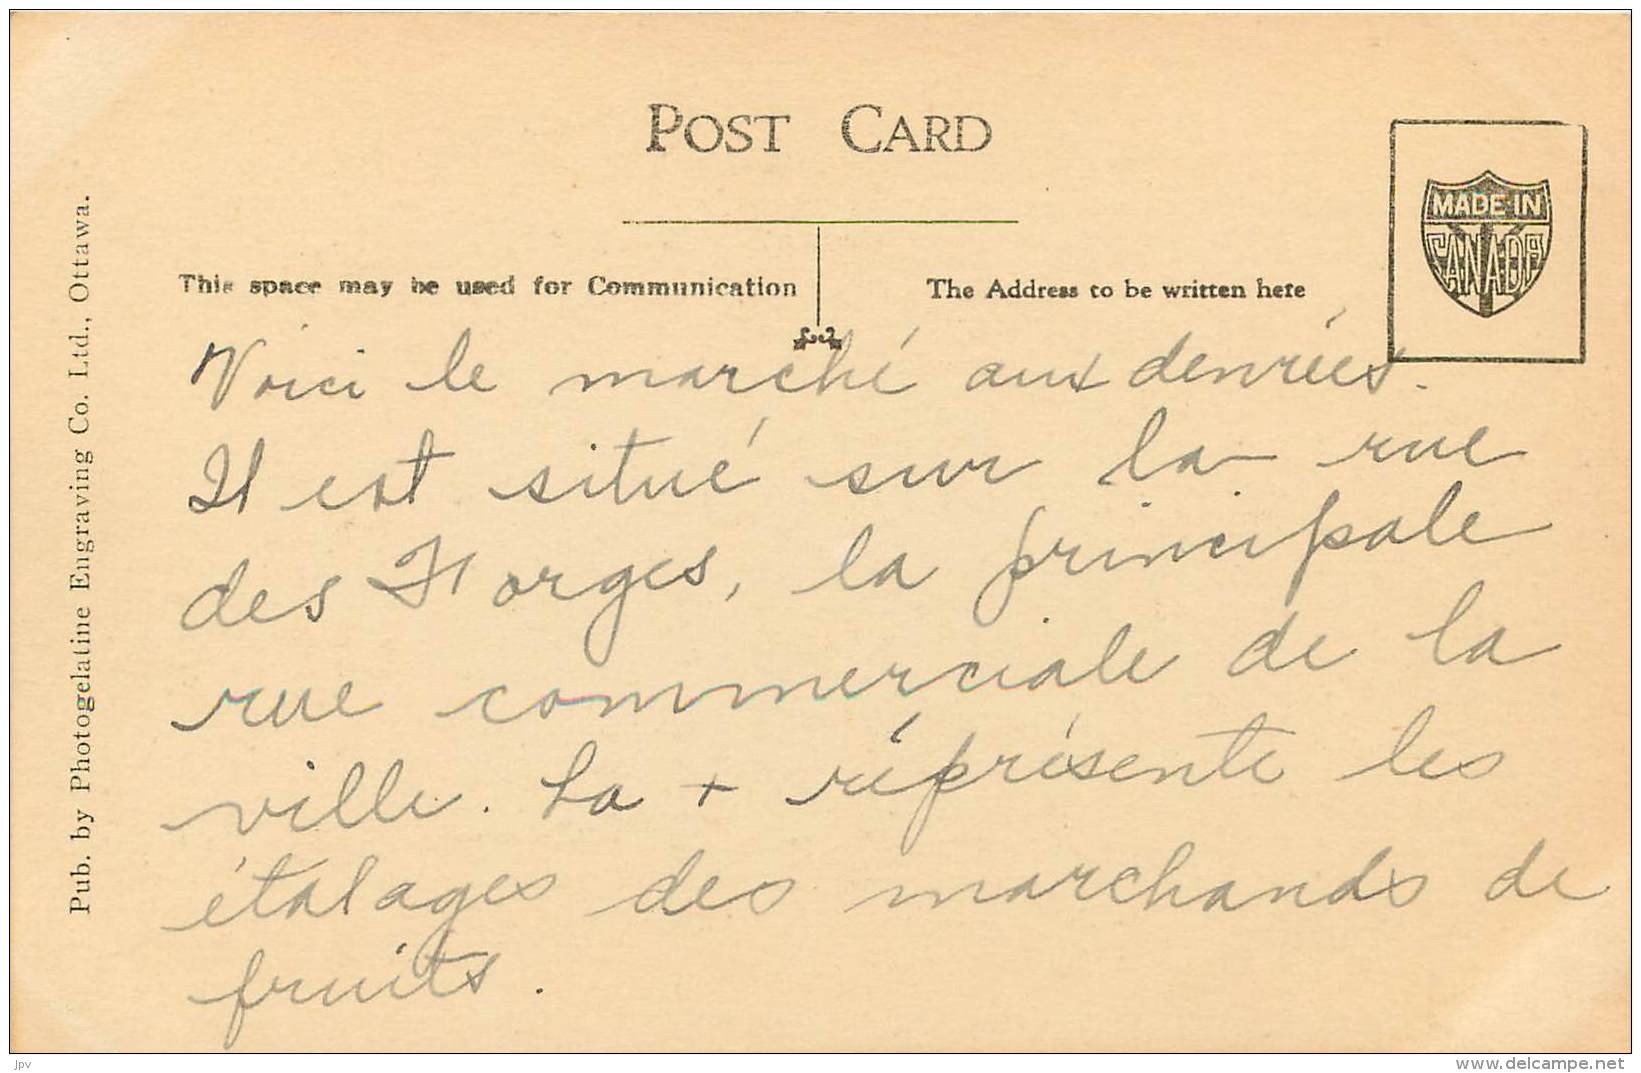 POST CARD
MADE IN
CANADA
This space may be used for Communication
The Address to be written here
Pub. by Photogelatine Engraving Co. Ltd., Ottawa.
Voici le marché aux denrées.
Il est situé sur la rue
des Forges, la principale
rue commerciale de la
ville. La + réprésente les
étalages des marchands de
fruits.
jpv
www.delcampe.net